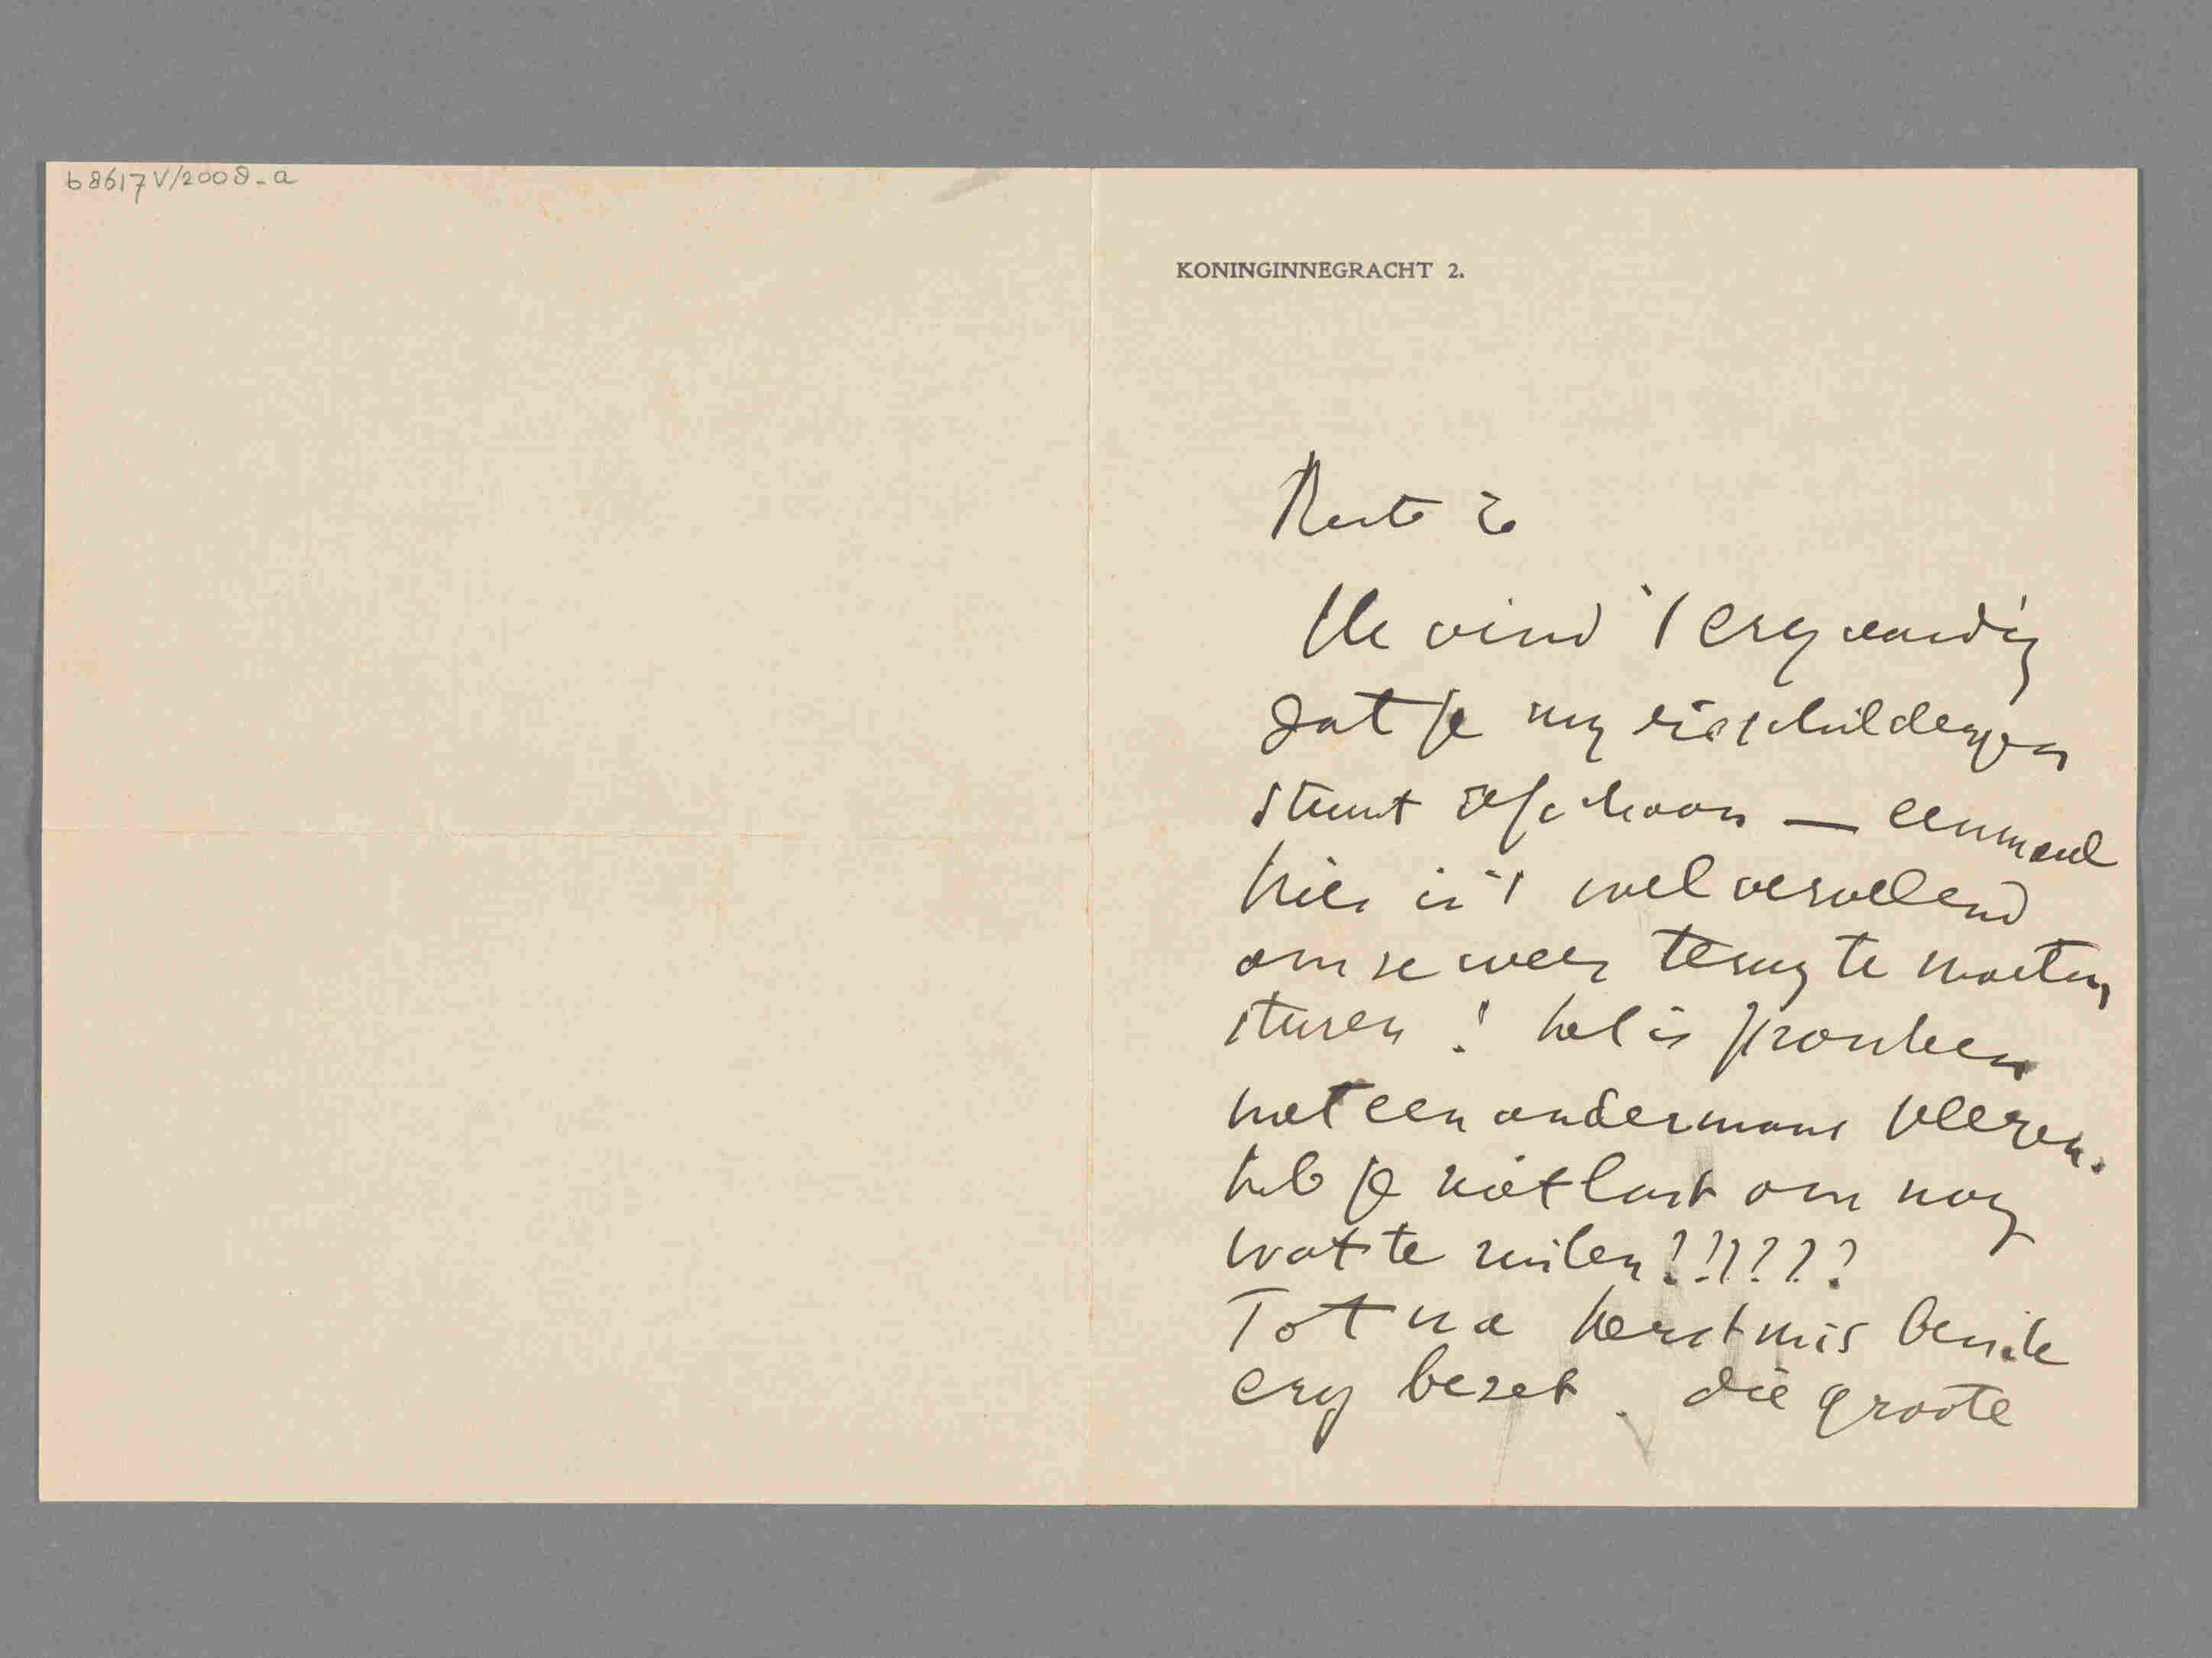 b8617V/2008-a
KONINGINNEGRACHT 2.
Beste Jo
Ik vind 't erg aardig
dat je mij die schilderyen
stuurt ofschoon — eenmaal
hier is 't wel vervelend
om ze weer terug te moeten
sturen! het is pronken
met een andermans veeren.
heb je niet lust om nog
wat te ruilen?!!????
Tot na kerstmis ben ik
erg bezet. die groote